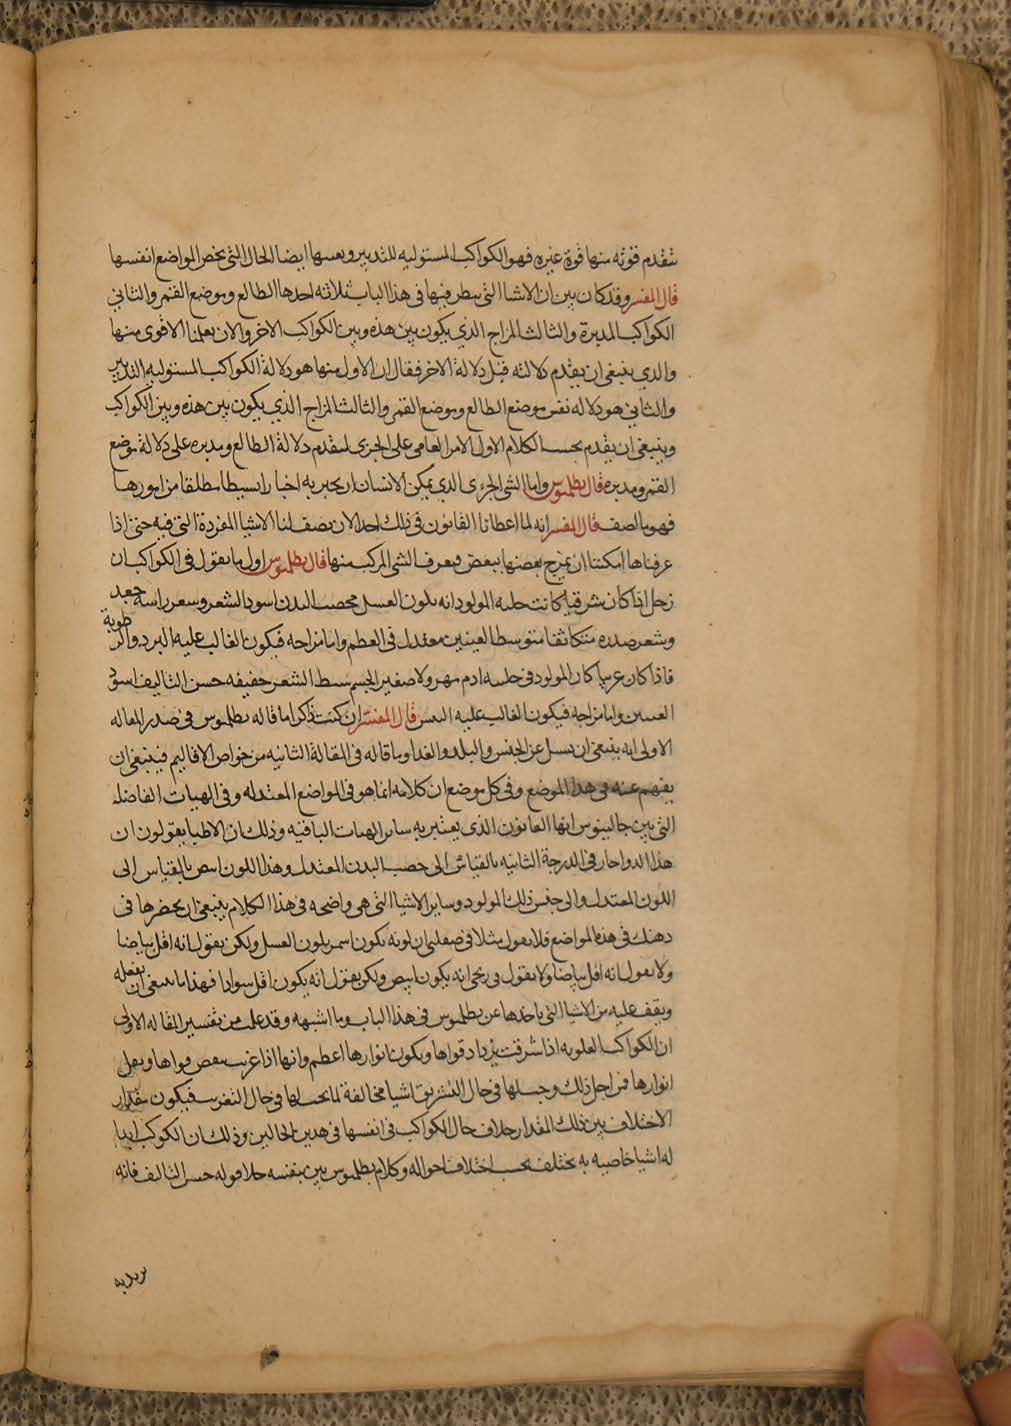 تتقدم قوته منها قوة غيره فهو الكواكب المستوليه للتدبير وبعسها ايضا الحال التى تخص المواضع انفسها
قال المفسر وقد كان بين ان الاشيا التى ينظر فيها فى هذا الباب ثلاثه احدها الطالع وموضع القمر والثانى
الكواكب المدبرة والثالث المزاج الذى يكون بين هذه وبين الكواكب الاخر والان يعلمنا الاقوى منها
والذى ينبغى ان يقدم دلالته قبل دلالة الاخر فقال ان الاول منها هو دلالة الكواكب المستوليه التدبير
والثانى هو دلاله نفس موضع الطالع وموضع القمر والثالث المزاج الذى يكون بين هذه وبين الكواكب
وينبغى ان يقدم بحسب الكلام الاول الامر العامى على الجزى لتقدم دلالة الطالع ومدبره على دلالة موضع
القمر ومدبره قال بطلميوس واما الشى الجزءى الذى يمكن الانسان ان يخبر به اخبارا بسيطا مطلقا من امورها
فهو بالصف قال المفسر انه لما اعطانا القانون فى ذلك اخد الان يصف لنا الاشيا المفردة التى فيه حتى اذا
عرفناها امكننا ان نمزج بعضها ببعض فيعرف الشى المركب منها قال بطلميوس اول ما يقول فى الكواكب ان
زحل اذا كان شرقيا كانت حليه المولود انه بلون العسل مخصب البدن اسود الشعر وشعر راسه جعد
وشعر صدره متكاثفا متوسط العينين معتدل فى العظم واما مزاجه فيكون الغالب عليه البرد والرطوبة
فاذا كان غربيا كان المولود فى حليته ادم مهزولا صغير الجسم سبط الشعر خفيفه حسن التاليف اسود
العينين واما مزاجه فيكون الغالب عليه اليبس قال المفسر ان كنت ذاكرا ما قاله بطلميوس فى صدر المقاله
الاولى انه ينبغى ان يسل عن الجنس والبلد والغدا وما قاله فى المقالة الثانيه من خواص الاقاليم فينبغى ان
يفهم عنه فى هذا الموضع وفى كل موضع ان كلامه انما هو فى المواضع المعتدله وفى الهيات الفاضله
التى بين جالينوس انها القانون الذى يعتبر به ساير الهيات الباقيه وذلك ان الاطبا يقولون ان
هذا الدوا حار فى الدرجة الثانيه بالقياس الى خصب البدن المعتدل وهذا اللون ابيض بالقياس الى
اللون المعتدل والى جنس ذلك المولود وساير الاشيا التى هى واضحه فى هذا الكلام ينبغى ان يحضرها فى
دهنك فى هذه المواضع فلا يقول مثلا فى صقلبى ان لونه يكون اسمر بلون العسل ولكن يقول انه اقل بياضا
ولا يقول انه اقل بياضا ولا يقول فى زنجى انه يكون ابيض ولكن يقول انه يكون اقل سوادا فهذا ما ينبغى ان يفعله
ويقف عليه من الاشيا التى ياخذها عن بطلميوس فى هذا الباب وما اشبهه وقد علمت من تفسير المقاله الاولى
ان الكواكب العلويه اذا شرقت يزداد قواها ويكون انوارها اعظم وانها اذا غربت ينقص قواها ويقل
انوارها فمن اجل ذلك وجب لها فى حال التشريق اشيا مخالفة لما يجب لها فى حال التغريب فيكون مقدار
الاختلاف بين ذلك المقدار خلاف حال الكواكب فى انفسها فى هذين الحالين وذلك ان الكوكب ايضا
له اشيا خاصيه به يختلف بحسب اختلاف احواله وكلام بطلميوس بين بنفسه خلا قوله حسن التاليف فانه
يريد به